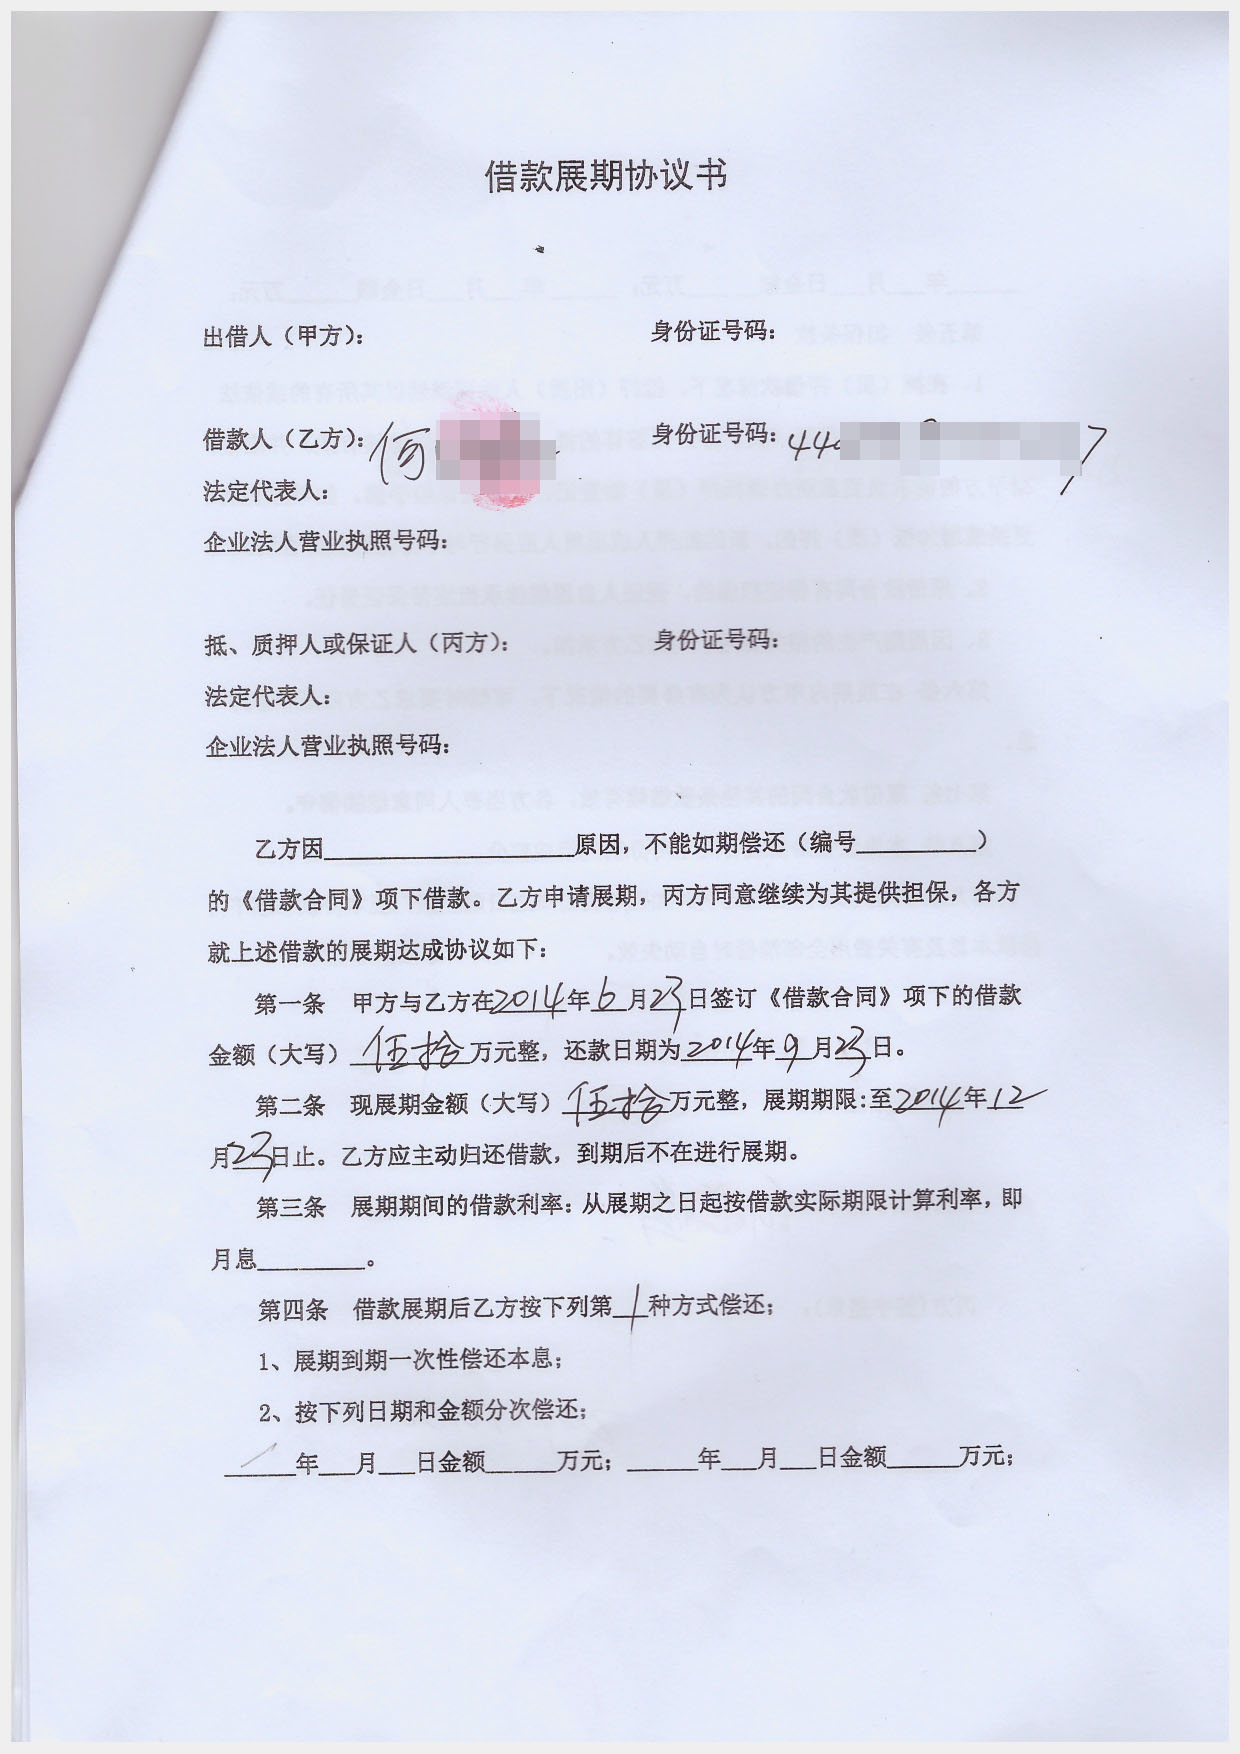 借款展期协议书
出借人（甲方）： 身份证号码：
借款人（乙方）：何 身份证号码：44 7
法定代表人：
企业法人营业执照号码：
抵、质押人或保证人（丙方）： 身份证号码：
法定代表人：
企业法人营业执照号码：
乙方因__________原因，不能如期偿还（编号__________）
的《借款合同》项下借款。乙方申请展期，丙方同意继续为其提供担保，各方
就上述借款的展期达成协议如下：
第一条 甲方与乙方在2014年6月23日签订《借款合同》项下的借款
金额（大写）伍拾万元整，还款日期为2014年9月23日。
第二条 现展期金额（大写）伍拾万元整，展期期限：至2014年12
月23日止。乙方应主动归还借款，到期后不在进行展期。
第三条 展期期间的借款利率：从展期之日起按借款实际期限计算利率，即
月息_________。
第四条 借款展期后乙方按下列第1种方式偿还；
1、展期到期一次性偿还本息；
2、按下列日期和金额分次偿还；
______年___月___日金额______万元；______年___月___日金额______万元；